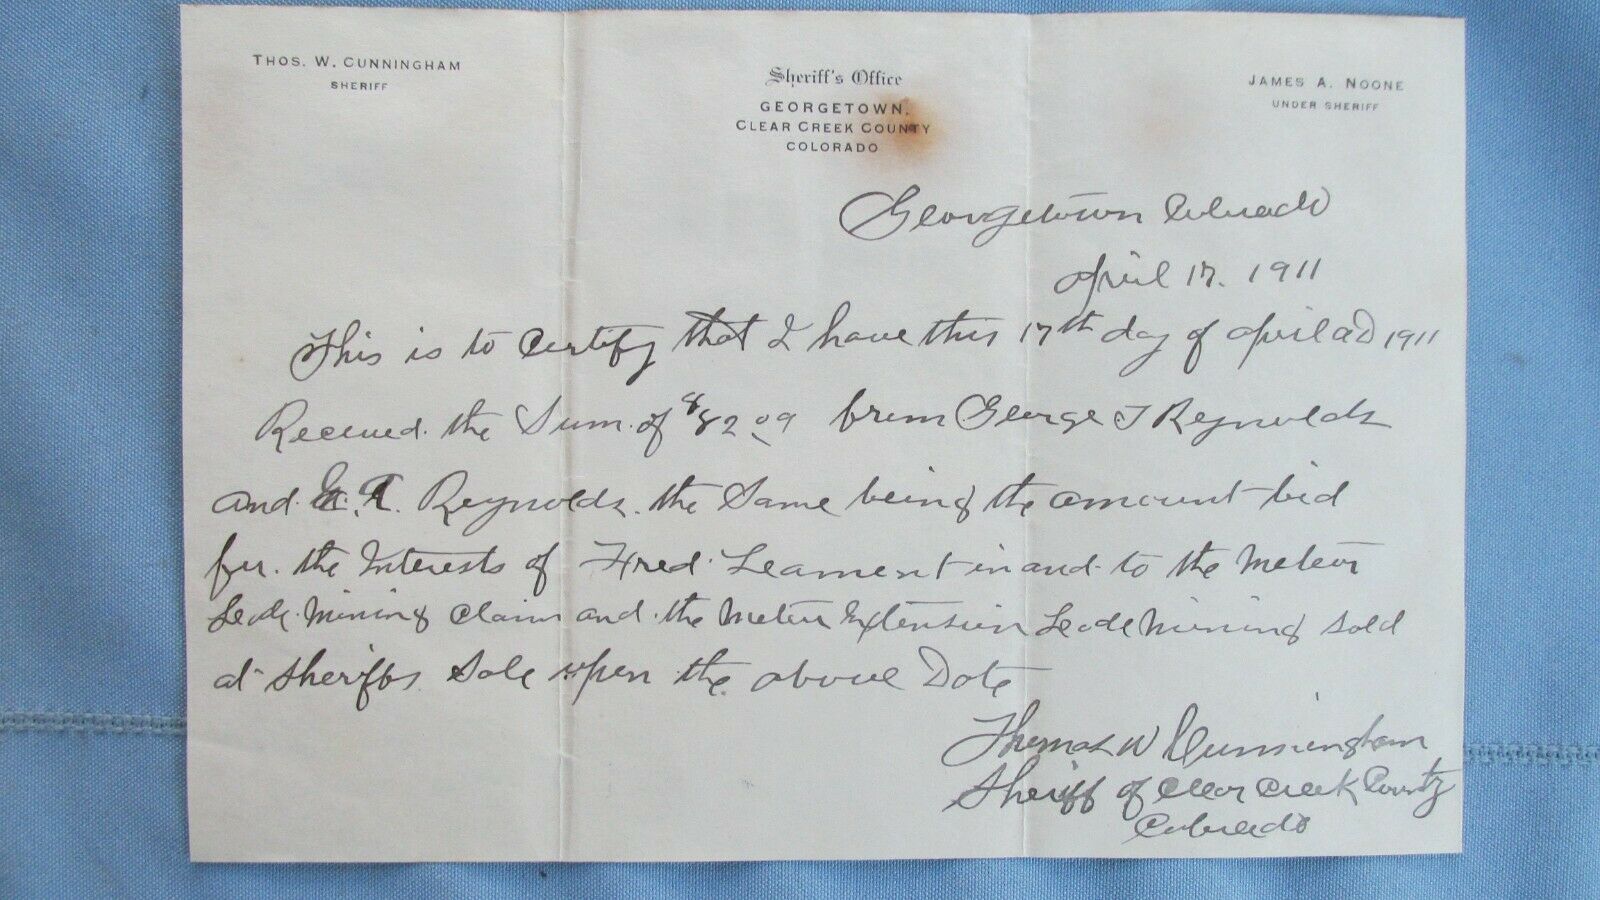 THOS. W. CUNNINGHAM
SHERIFF
Sheriff's Office
GEORGETOWN,
CLEAR CREEK COUNTY
COLORADO
JAMES A. NOONE
UNDER SHERIFF
Georgetown Colorado
April 17. 1911
This is to Certify that I have this 17th day of April AD 1911
Received the Sum of $82.09 from George T Reynolds
and Reynolds. the Same being the amount bid
for the Interests of Fred Leament in and to the Meteor
Lode Mining Claim and the Meteor Extension Lode Mining sold
at Sheriffs Sale upon the above Date
Thomas W Cunningham
Sheriff of Clear Creek County
Colorado